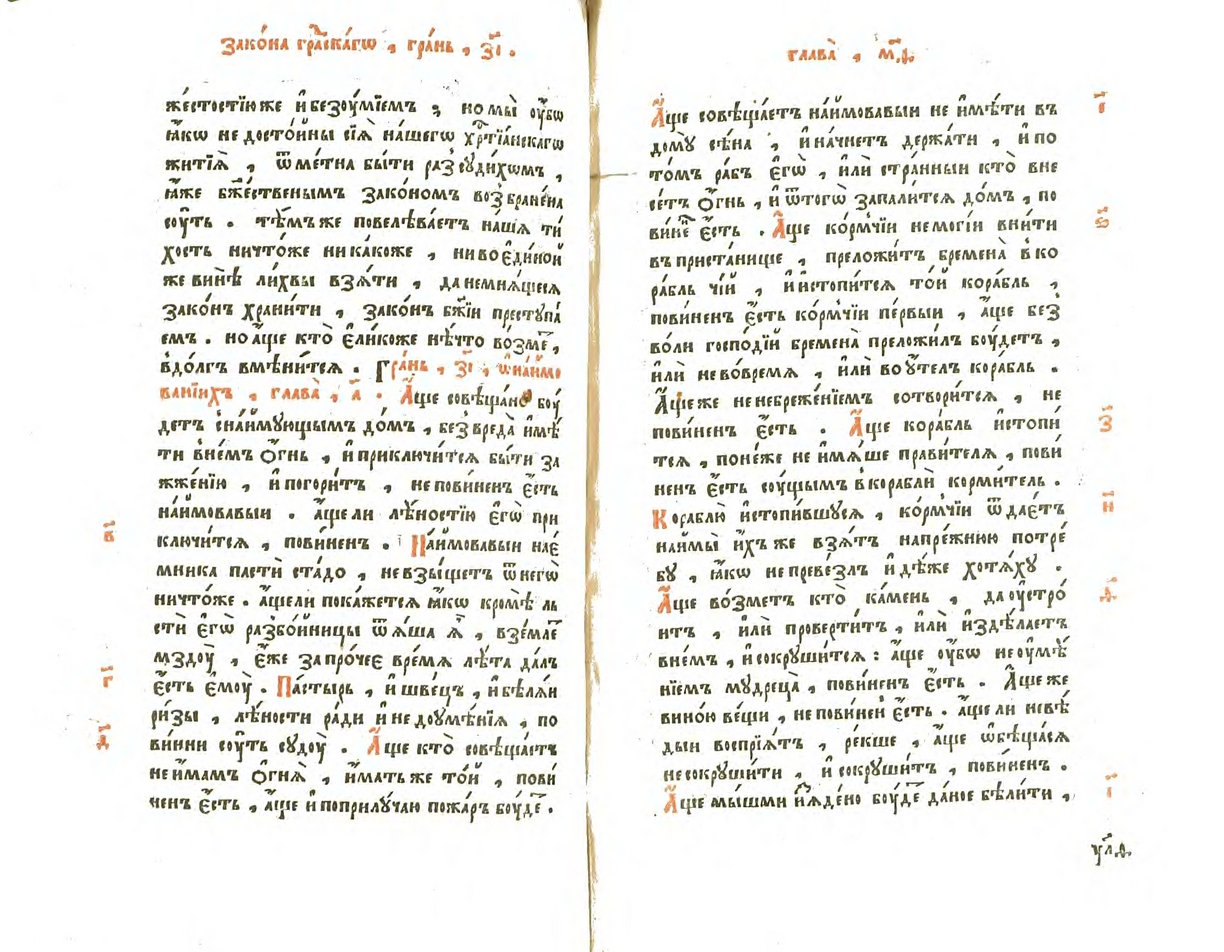 Зако́на гра́дскагѡ , гра́нь , з҃і .
же́стостїю же и҆ безꙋ́мїемъ ; но мы̀ ᲂу҆́бѡ
ꙗ҆́кѡ не досто́йны сїѧ̀ на́шегѡ хрⷭ҇тїа́нскагѡ
житїѧ̀ , ѿме́тна бы́ти разсꙋди́хомъ ,
ꙗ҆́же бж҃е́ственымъ зако́номъ возбране́на
сꙋ́ть . тѣ́мъ же повелѣва́етъ на́шѧ ти́
хость ничто́же ника́коже , ни во є҆ди́ной
же винѣ̀ ли́хвы взѧ́ти , да не мнѧ́щесѧ
зако́нъ храни́ти , зако́нъ бж҃їи престꙋпа́
емъ . но а҆́ще кто̀ є҆ли́коже нѣ́что во́зме ,
в до́лгъ вмѣни́тсѧ . Гра́нь , з҃і , ѡ҆ наи҆мо
ва́нїихъ , глава̀ , а҃ . А҆́ще совѣща́но бꙋ́
детъ с наи҆мꙋ́ющымъ до́мъ , без вреда̀ и҆мѣ́
ти в не́мъ ѻ҆́гнь , и҆ приключи́тсѧ бы́ти за
жже́нїю , и҆ погори́тъ , не пови́ненъ є҆́сть
наи҆мова́выи . а҆́ще ли лѣ́ностїю є҆гѡ̀ при
ключи́тсѧ , пови́ненъ . Наи҆мова́выи нае́
в҃
мника пастѝ ста́до , не взы́щетъ ѿ негѡ̀
ничто́же . а҆́ще ли пока́жетсѧ ꙗ҆́кѡ кромѣ̀ ль
стѝ є҆гѡ̀ разбо́йницы ѿѧ́ша ѧ҆̀ , взе́млеⷮ
мздꙋ̀ , є҆́же за про́чее вре́мѧ лѣ́та да́лъ
є҆́сть є҆мꙋ̀ . Па́стырь , и҆ шве́цъ , и҆ бѣлѧ́и
г҃
ри́зы , лѣ́ности ра́ди и҆ недоумѣ́нїѧ , по
ви́нни сꙋ́ть сꙋдꙋ̀ . А҆́ще кто̀ совѣща́етъ
д҃
не и҆́мамъ ѻ҆гнѧ̀ , и҆́мать же то́й , пови́
ненъ є҆́сть , а҆́ще и҆ по прилꙋ́чаю пожа́ръ бꙋ́де .
глава̀ , м҃ѳ .
А҆́ще совѣща́етъ наи҆мова́выи не и҆мѣ́ти въ
домꙋ̀ сѣ́на , и҆ начне́тъ держа́ти , и҆ по
то́мъ ра́бъ є҆гѡ̀ , и҆лѝ стра́нныи кто̀ вне
се́тъ ѻ҆́гнь , и҆ ѿ тогѡ̀ запали́тсѧ до́мъ , по
ви́неⷩ є҆́сть . А҆́ще ко́рмчїи не могі́и вни́ти
в приста́нище , преложи́тъ бремена̀ в ко
ра́бль чі́й , и҆ и҆стопи́тсѧ то́й кора́бль ,
пови́ненъ є҆́сть ко́рмчїи пе́рвыи , а҆́ще без
во́ли госпо́дїй бремена̀ преложи́лъ бꙋ́детъ ,
и҆лѝ не во́времѧ , и҆лѝ во ᲂу҆́телъ кора́бль .
А҆́ще же не небреже́нїемъ сотвори́тсѧ , не
пови́ненъ є҆́сть . А҆́ще кора́бль и҆стопи́
з҃
тсѧ , поне́же не и҆мѧ́ше прави́телѧ , пови́
ненъ є҆́сть сꙋ́щымъ в корабли́ корми́тель .
Кораблю̀ и҆стопи́вшꙋсѧ , ко́рмчїи ѿдае́тъ
и҃
наи҆мы̀ и҆́хъ же взѧ́тъ напре́жнюю потре́
бꙋ , ꙗ҆́кѡ не преве́злъ и҆дѣ́же хотѧ́хꙋ .
А҆́ще во́зметъ кто̀ ка́мень , да ᲂу҆стро́
ѳ҃
итъ , и҆лѝ проверти́тъ , и҆лѝ и҆здѣ́лаетъ
в не́мъ , и҆ сокрꙋши́тсѧ : а҆́ще ᲂу҆́бѡ не ᲂу҆мѣ́
нїемъ мꙋдреца̀ , пови́ненъ є҆́сть . А҆́ще же
вино́ю ве́щи , не пови́нен є҆́сть . а҆́ще ли невѣ́
дыи воспрїѧ́тъ , ре́кше , а҆́ще ѡ҆бѣща́сѧ
не сокрꙋши́ти , и҆ сокрꙋши́тъ , пови́ненъ .
А҆́ще мы́шми и҆з̾ѧде́но бꙋ́де да́ное бѣли́ти ,
і҃
ᲂу҆л҃ѳ.